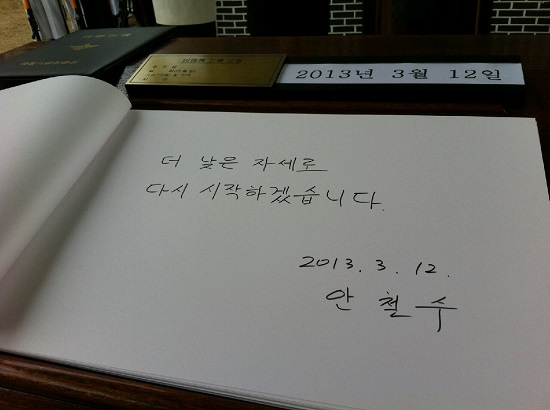 2013년 3월 12일
더 낮은 자세로
다시 시작하겠습니다.
2013. 3. 12.
안 철 수